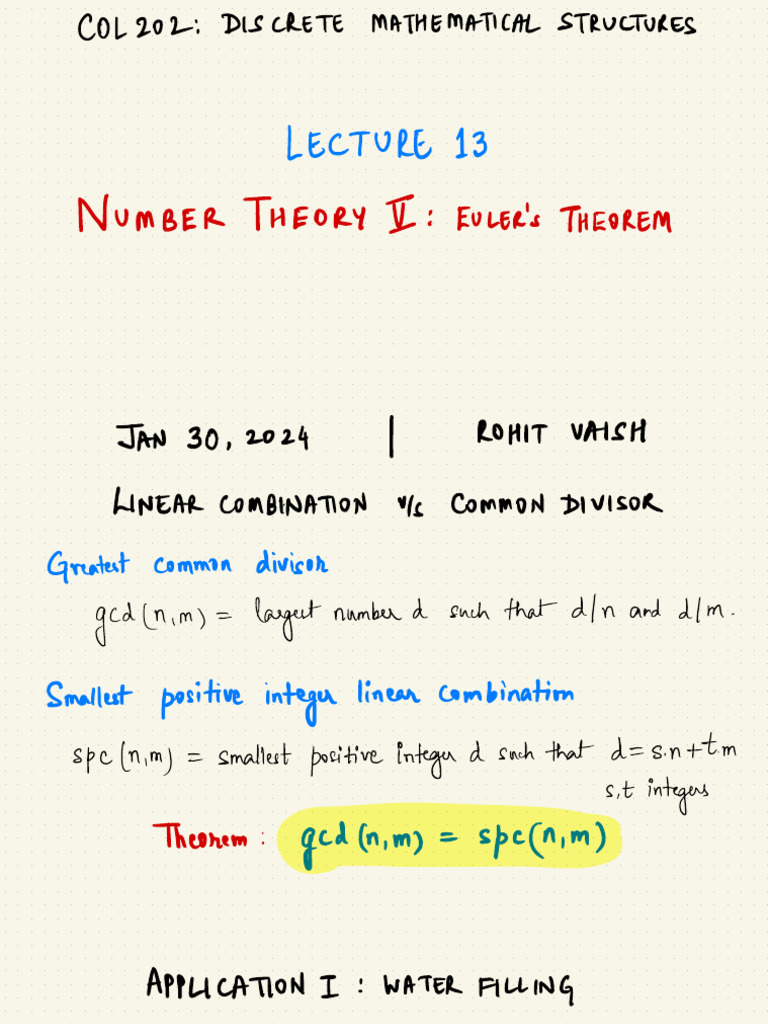 COL 202: DISCRETE MATHEMATICAL STRUCTURES
LECTURE 13
NUMBER THEORY V: EULER'S THEOREM
JAN 30, 2024 | ROHIT VAISH
LINEAR COMBINATION v/s COMMON DIVISOR
Greatest common divisor
gcd(n,m) = largest number d such that d/n and d/m.
Smallest positive integer linear combination
spc(n,m) = smallest positive integer d such that d=s.n+t.m
s,t integers
Theorem: gcd(n,m) = spc(n,m)
APPLICATION I: WATER FILLING